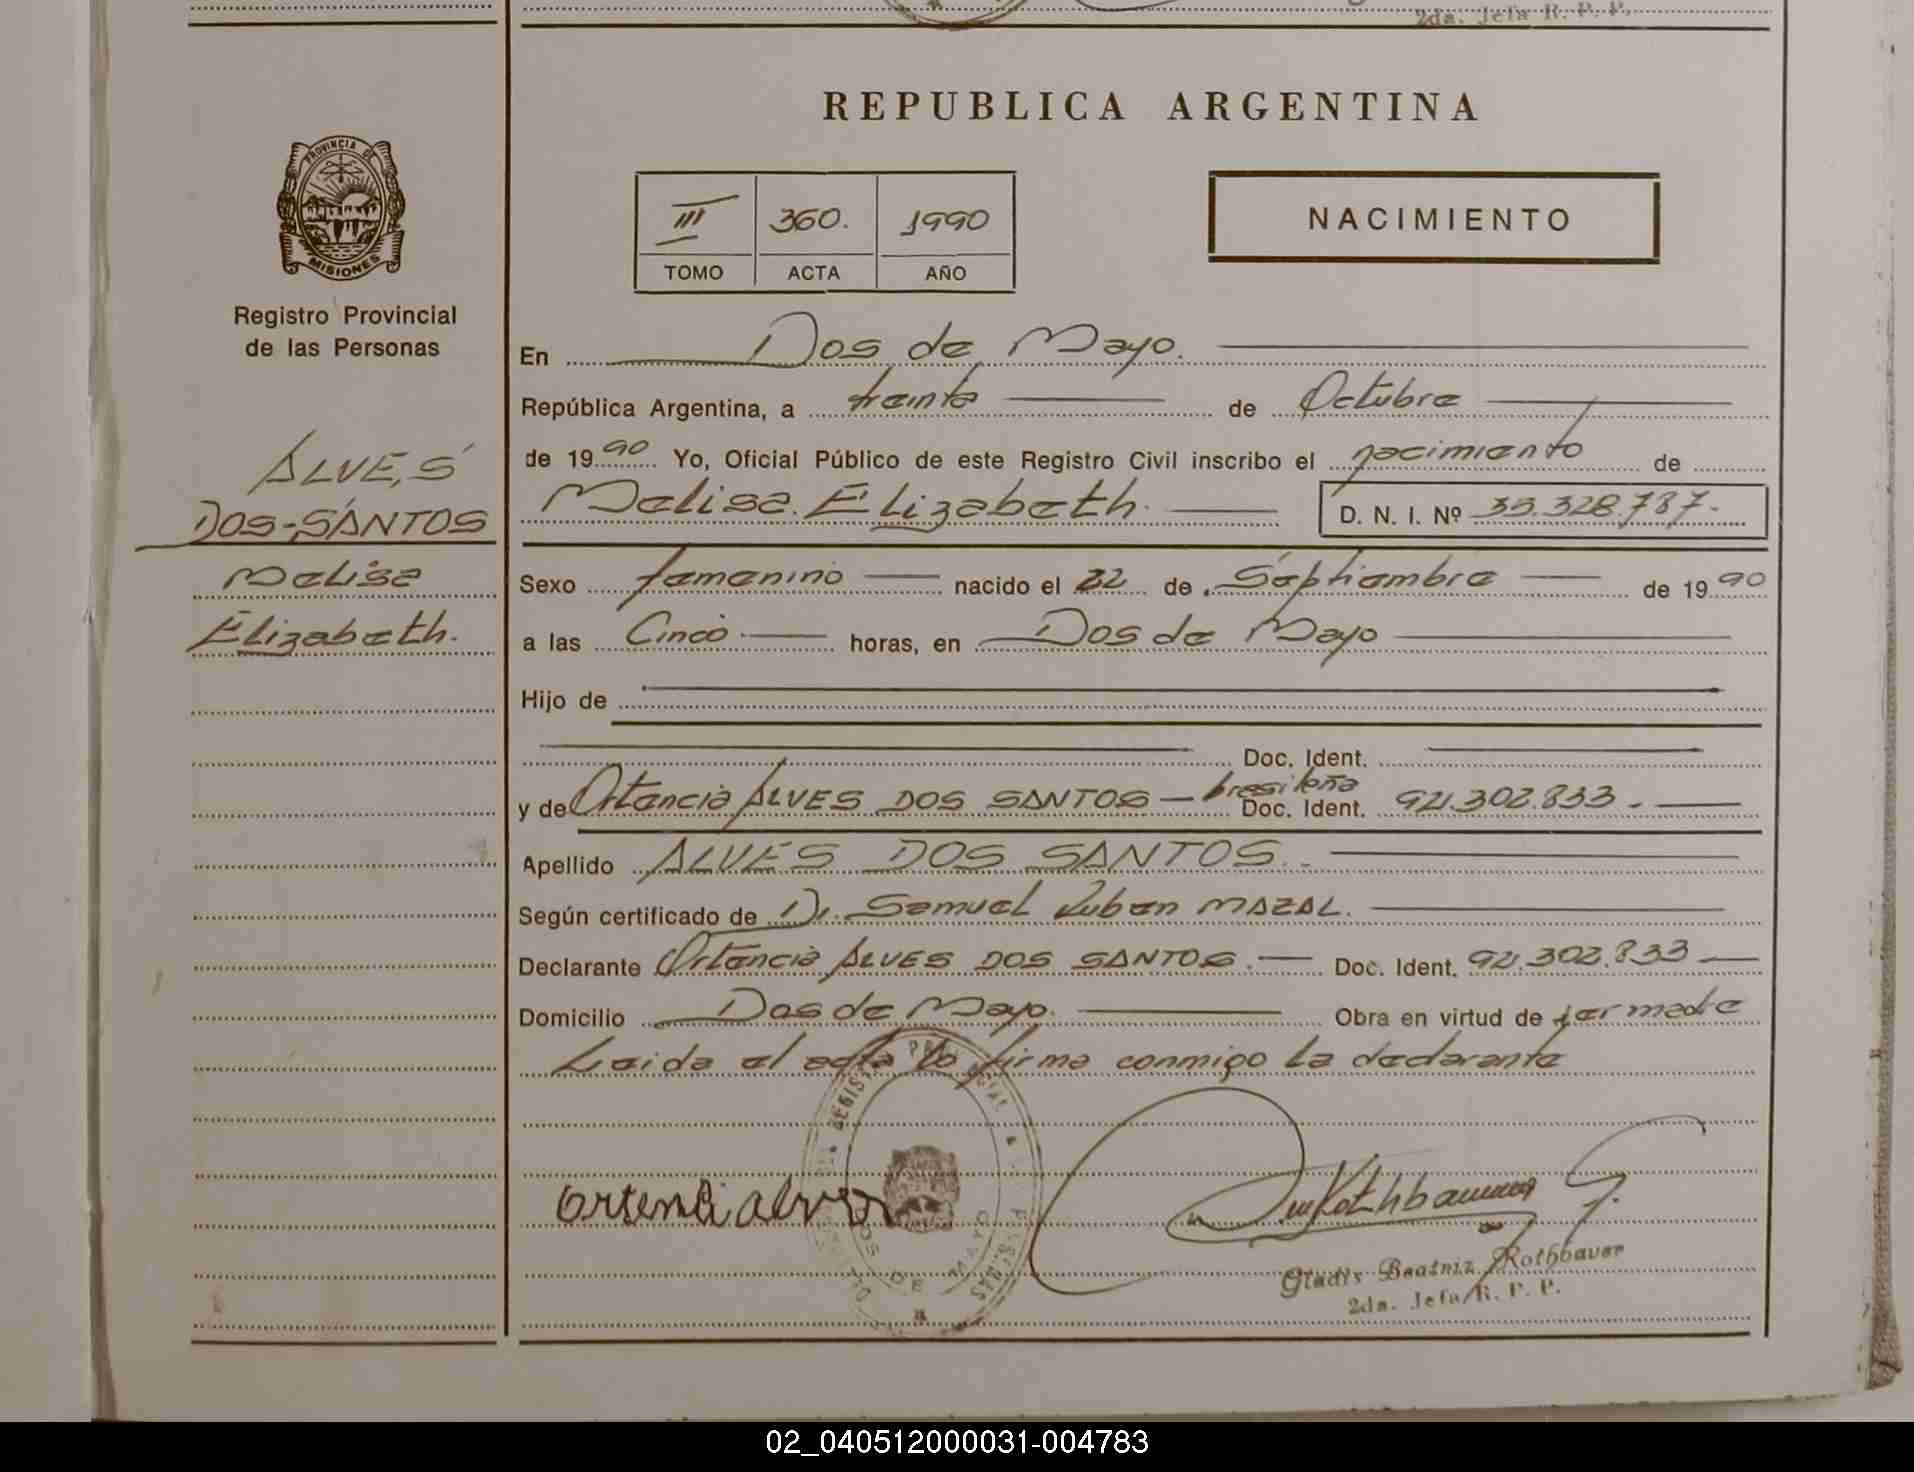 2da. Jefa R. P. P.
REPUBLICA ARGENTINA
PROVINCIA DE
MISIONES
Registro Provincial
de las Personas
III 360. 1990
TOMO ACTA AÑO
NACIMIENTO
ALVES
DOS-SANTOS
Melisa
Elizabeth.
En Dos de Mayo.
República Argentina, a treinta de Octubre
de 1990 Yo, Oficial Público de este Registro Civil inscribo el nacimiento de
Melisa Elizabeth. D. N. I. Nº 35.328.787.-
Sexo femenino nacido el 22 de Septiembre de 1990
a las Cinco horas, en Dos de Mayo
Hijo de
Doc. Ident.
y de Ortencia ALVES DOS SANTOS - brasileña Doc. Ident. 92.302.833.-
Apellido ALVES DOS SANTOS.-
Según certificado de Dr. Samuel Ruben MAZAL.
Declarante Ortencia ALVES DOS SANTOS.- Doc. Ident. 92.302.833
Domicilio Dos de Mayo. Obra en virtud de ser madre
Leida el acta la firma conmigo la declarante
Gladis Beatriz Rothbauer
2da. Jefa R. P. P.
02_040512000031-004783